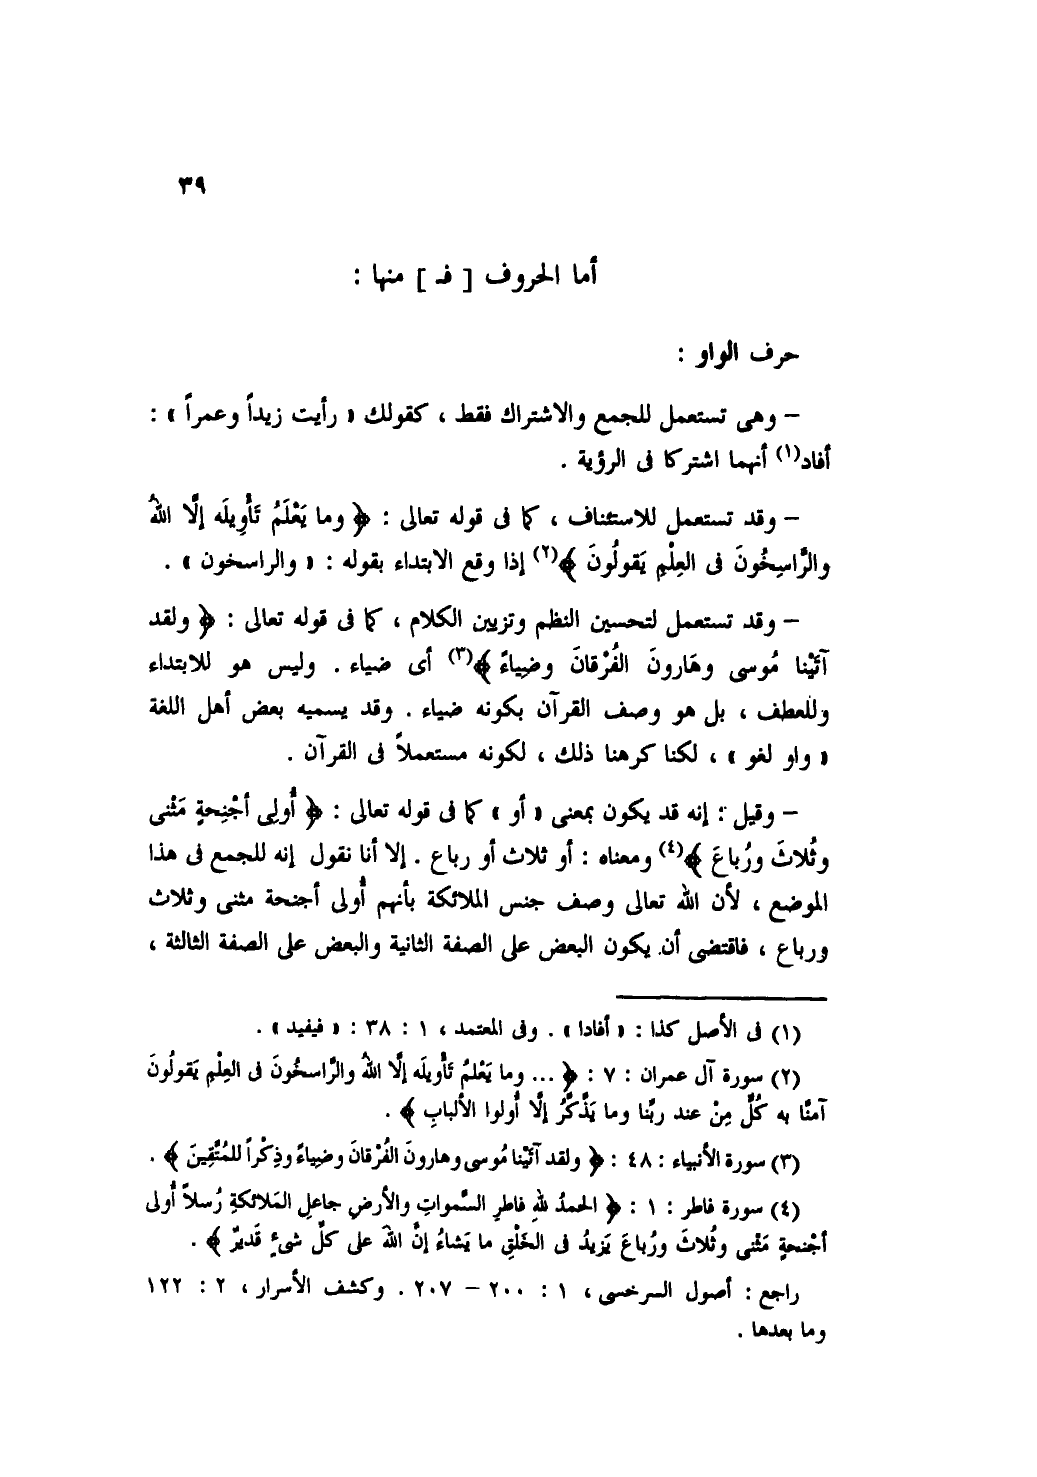 ٣٩
أما الحروف [ فـ ] منها :
حرف الواو :
– وهى تستعمل للجمع والاشتراك فقط ، كقولك « رأيت زيداً وعمراً » :
أفاد(١) أنهما اشتركا فى الرؤية .
– وقد تستعمل للاستئناف ، كما فى قوله تعالى : ﴿ وما يَعْلَمُ تَأْوِيلَه إلَّا اللهُ
والرَّاسِخُونَ فى العِلْمِ يَقولُونَ ﴾(٢) إذا وقع الابتداء بقوله : « والراسخون » .
– وقد تستعمل لتحسين النظم وتزيين الكلام ، كما فى قوله تعالى : ﴿ ولقد
آتَيْنا مُوسى وهَارونَ الفُرْقانَ وضِياءً ﴾(٣) أى ضياء . وليس هو للابتداء
وللعطف ، بل هو وصف القرآن بكونه ضياء . وقد يسميه بعض أهل اللغة
« واو لغو » ، لكنا كرهنا ذلك ، لكونه مستعملاً فى القرآن .
– وقيل : إنه قد يكون بمعنى « أو » كما فى قوله تعالى : ﴿ أُولِى أجْنِحةٍ مَثْنى
وثُلاثَ ورُباعَ ﴾(٤) ومعناه : أو ثلاث أو رباع . إلا أنا نقول إنه للجمع فى هذا
الموضع ، لأن الله تعالى وصف جنس الملائكة بأنهم أُولى أجنحة مثنى وثلاث
ورباع ، فاقتضى أن يكون البعض على الصفة الثانية والبعض على الصفة الثالثة ،
(١) فى الأصل كذا : « أفادا » . وفى المعتمد ، ١ : ٣٨ : « فيفيد » .
(٢) سورة آل عمران : ٧ : ﴿ ... وما يَعْلمُ تَأْويلَه إلَّا اللهُ والرَّاسخُونَ فى العِلْمِ يَقولُونَ
آمنَّا به كُلٌّ مِنْ عند ربِّنا وما يَذَّكَّرُ إلَّا أُولوا الألبابِ ﴾ .
(٣) سورة الأنبياء : ٤٨ : ﴿ ولقد آتَيْنا مُوسى وهارونَ الفُرْقانَ وضِياءً وذِكْراً للمُتَّقِينَ ﴾ .
(٤) سورة فاطر : ١ : ﴿ الحمدُ للهِ فاطرِ السَّمواتِ والأرضِ جاعلِ المَلائكةِ رُسلاً أُولى
أجْنحةٍ مَثْنى وثُلاثَ ورُباعَ يَزيدُ فى الخَلْقِ ما يَشاءُ إنَّ اللهَ على كلِّ شىءٍ قَديرٌ ﴾ .
راجع : أصول السرخسى ، ١ : ٢٠٠ – ٢٠٧ . وكشف الأسرار ، ٢ : ١٢٢
وما بعدها .